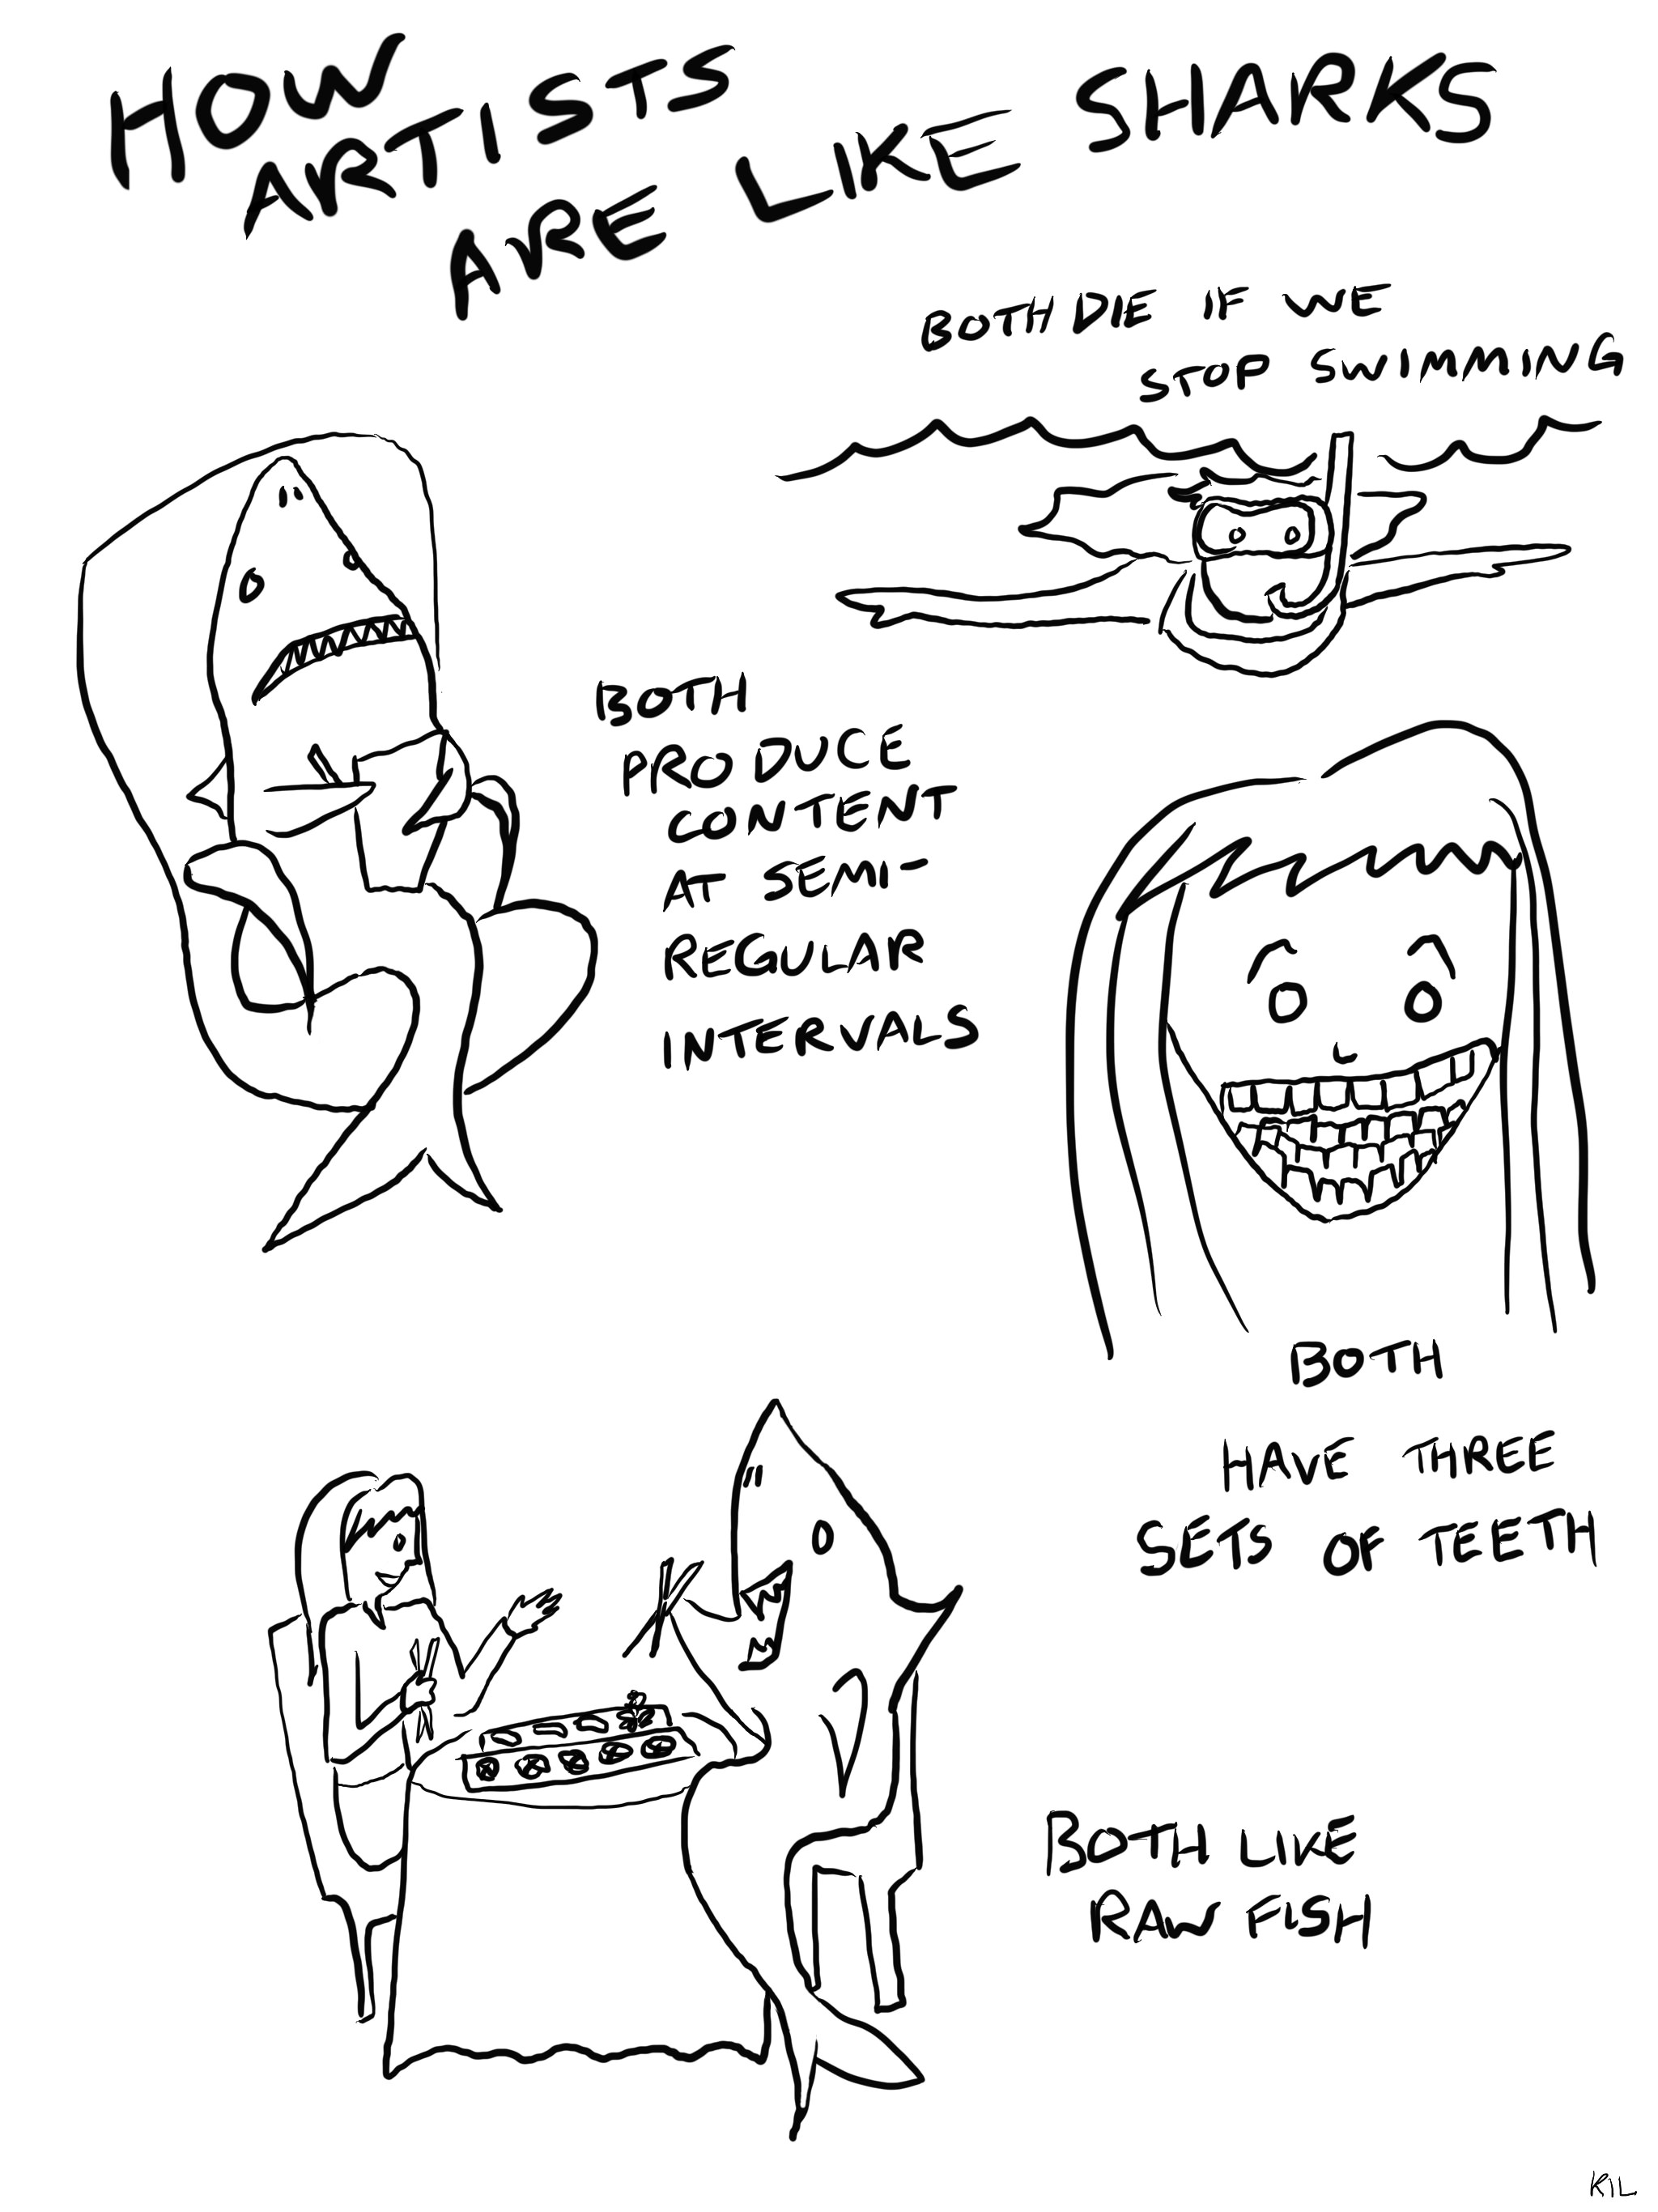 HOW
ARTISTS
ARE LIKE SHARKS
BOTH DIE IF WE
STOP SWIMMING
BOTH
PRODUCE
CONTENT
AT SEMI-
REGULAR
INTERVALS
BOTH
HAVE THREE
SETS OF TEETH
BOTH LIKE
RAW FISH
KIL